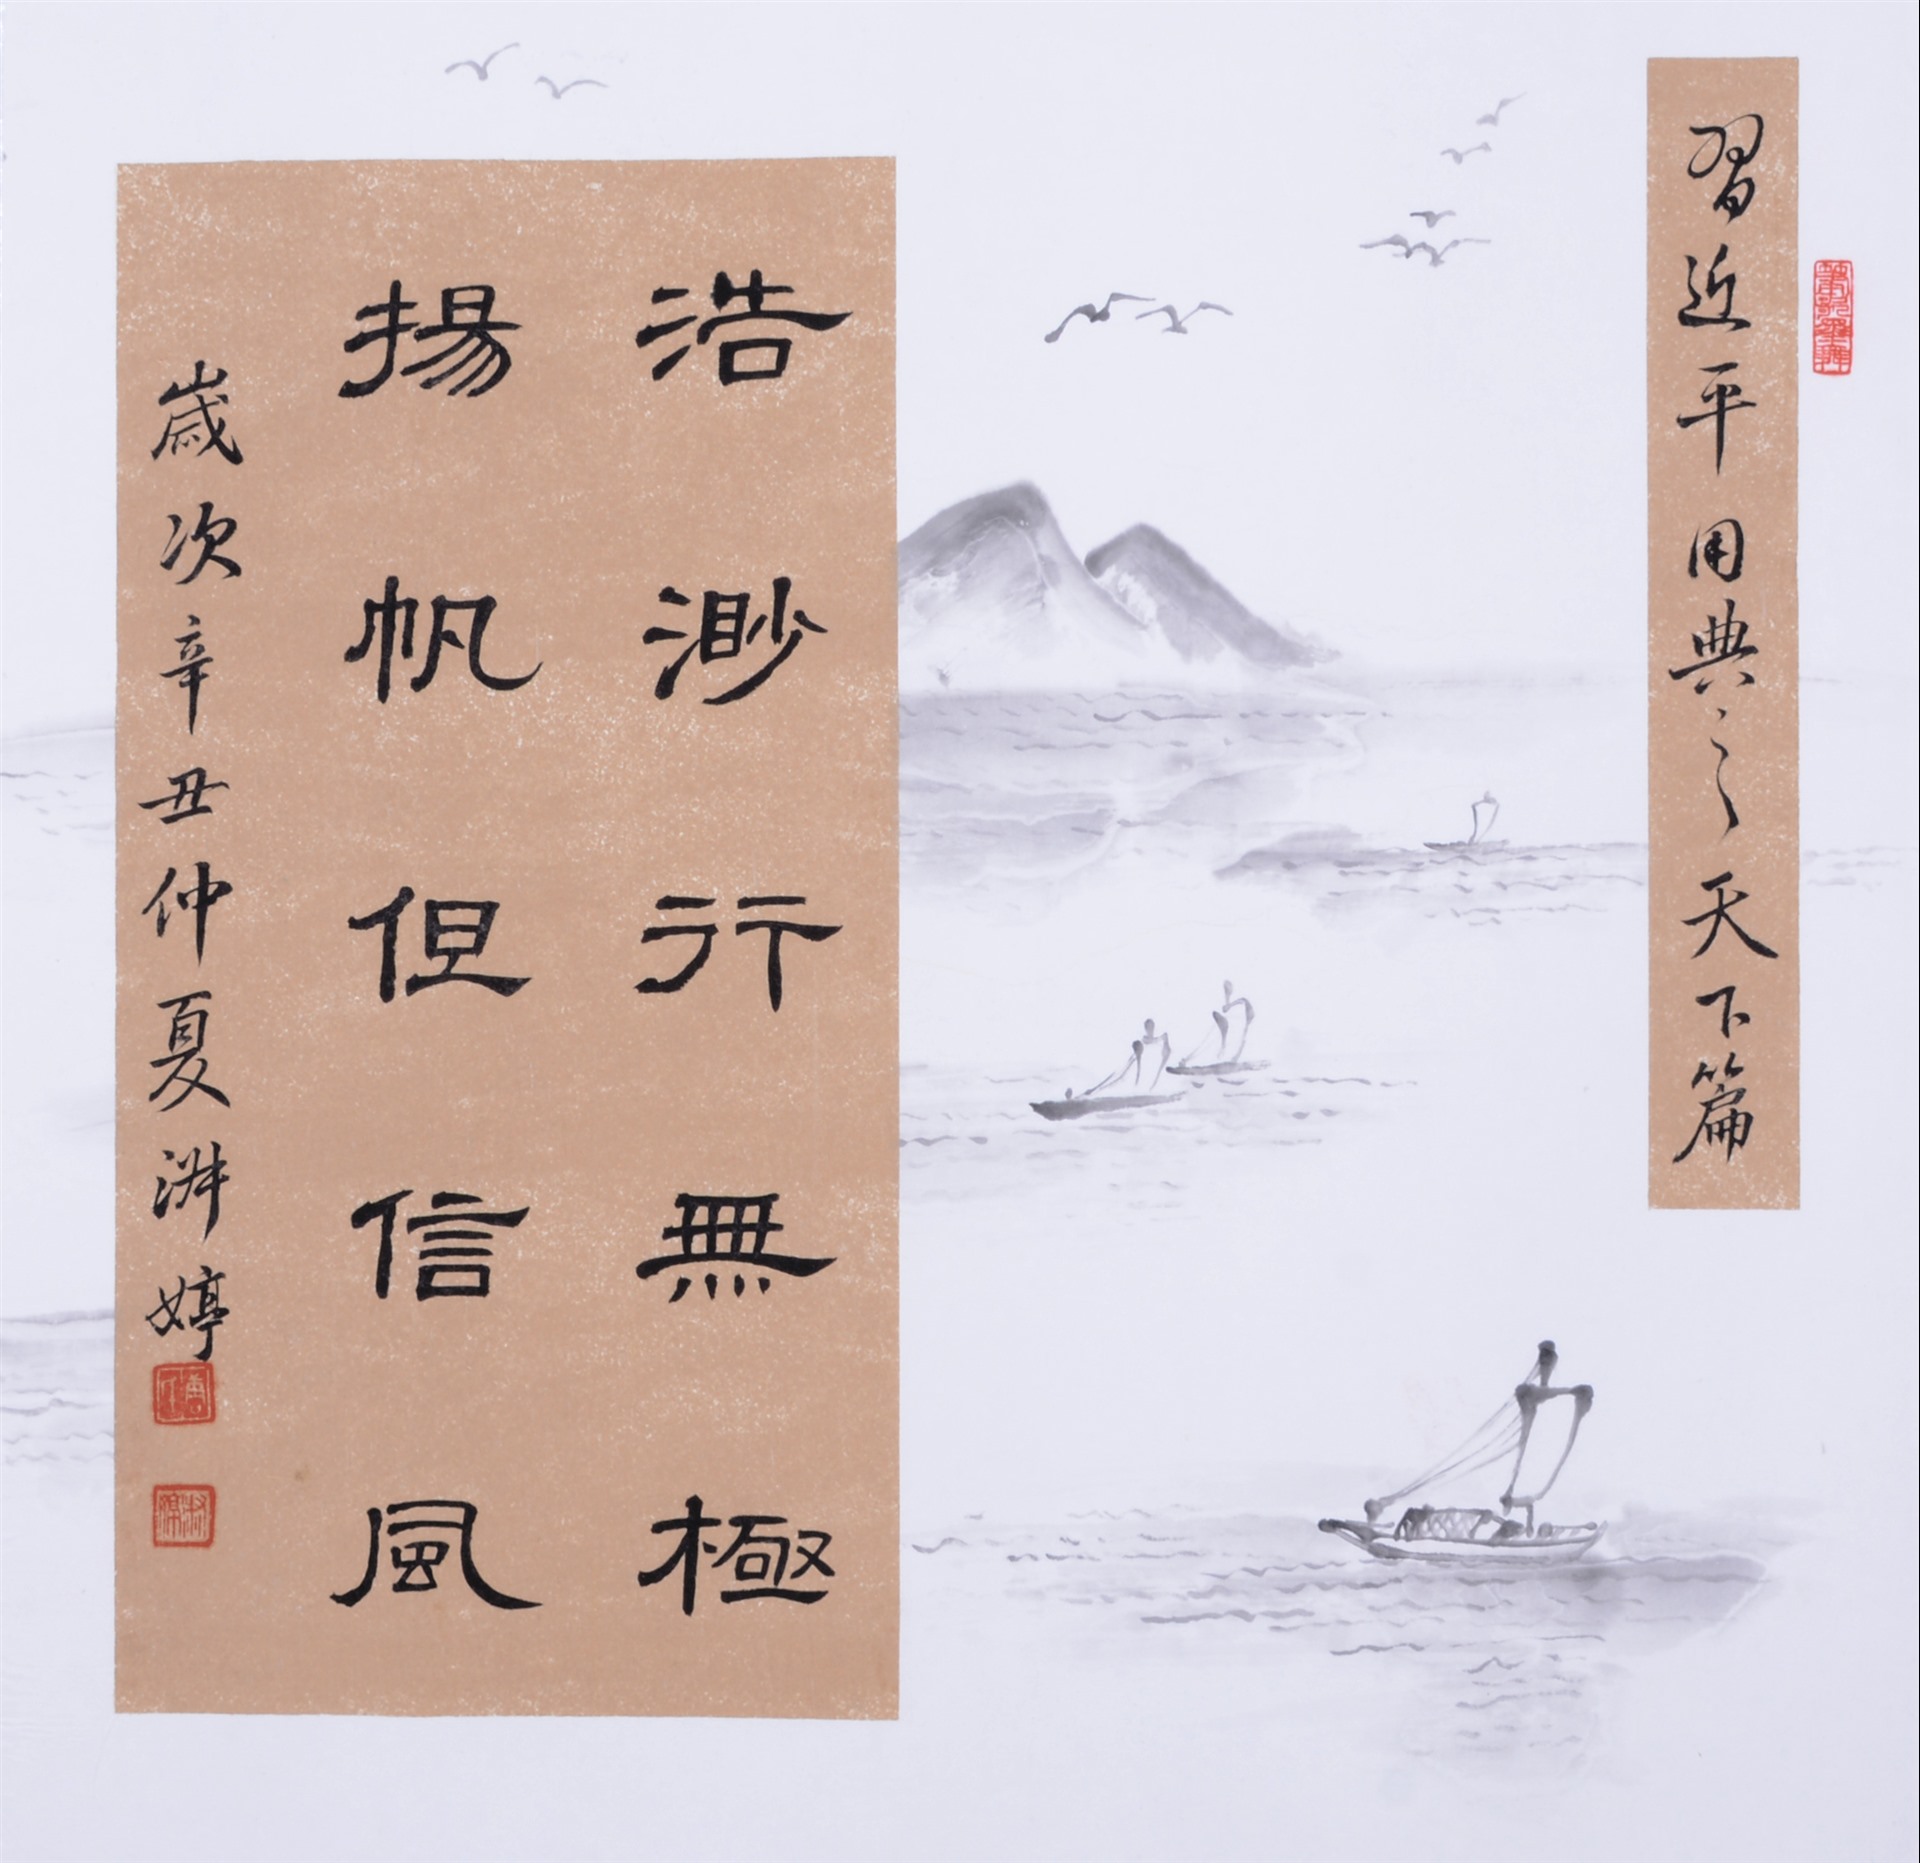 習近平用典之天下篇
浩渺行無極
揚帆但信風
歲次辛丑仲夏淑婷